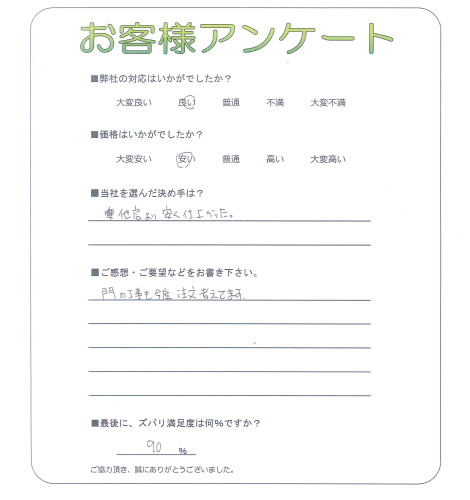 お客様アンケート
■弊社の対応はいかがでしたか？
大変良い 良い 普通 不満 大変不満
■価格はいかがでしたか？
大変安い 安い 普通 高い 大変高い
■当社を選んだ決め手は？
他店より安く仕上がった。
■ご感想・ご要望などをお書き下さい。
門の工事も今度注文考えてます。
■最後に、ズバリ満足度は何%ですか？
90 %
ご協力頂き、誠にありがとうございました。